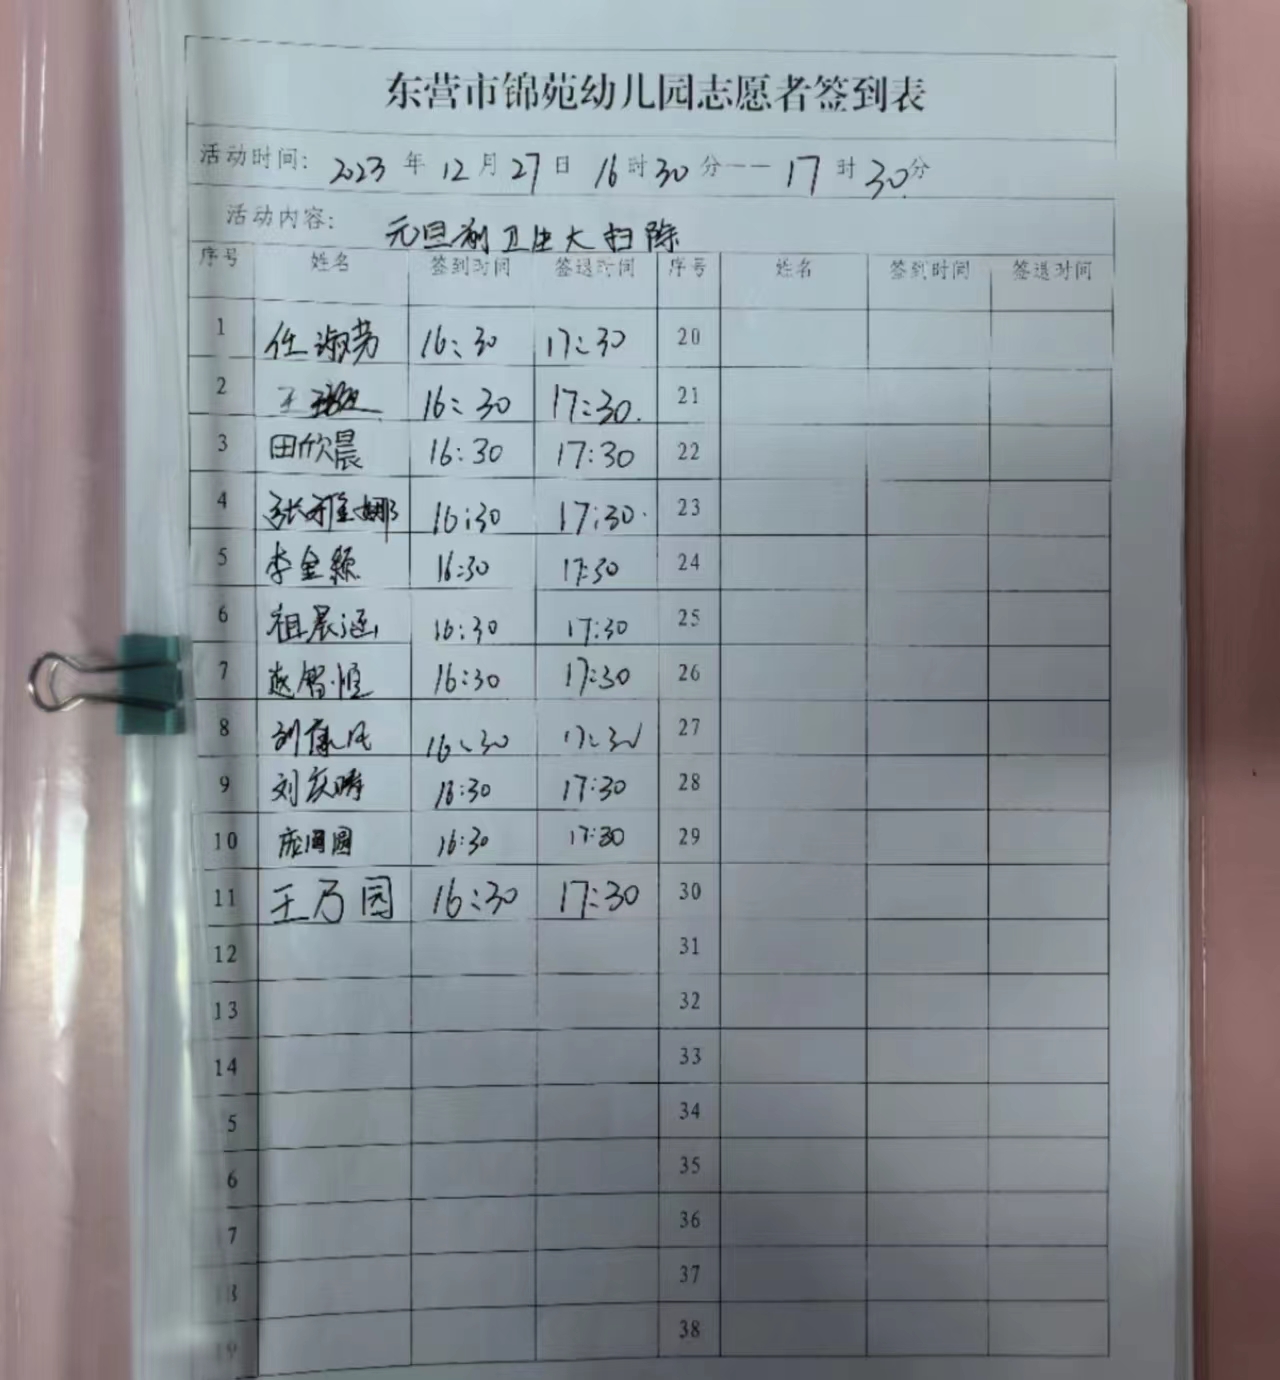 东营市锦苑幼儿园志愿者签到表
活动时间: 2023 年 12 月 27 日 16 时 30 分 —— 17 时 30 分
活动内容: 元旦前卫生大扫除
序号 姓名 签到时间 签退时间 序号 姓名 签到时间 签退时间
1 任淑芳 16:30 17:30 20
2 王 16:30 17:30. 21
3 田欣晨 16:30 17:30 22
4 张雅娜 16:30 17:30. 23
5 李金颖 16:30 17:30 24
6 祖晨涵 16:30 17:30 25
7 赵智恒 16:30 17:30 26
8 刘康凤 16:30 17:30 27
9 刘庆涛 16:30 17:30 28
10 庞圆圆 16:30 17:30 29
11 王乃园 16:30 17:30 30
12 31
13 32
14 33
5 34
6 35
7 36
18 37
19 38